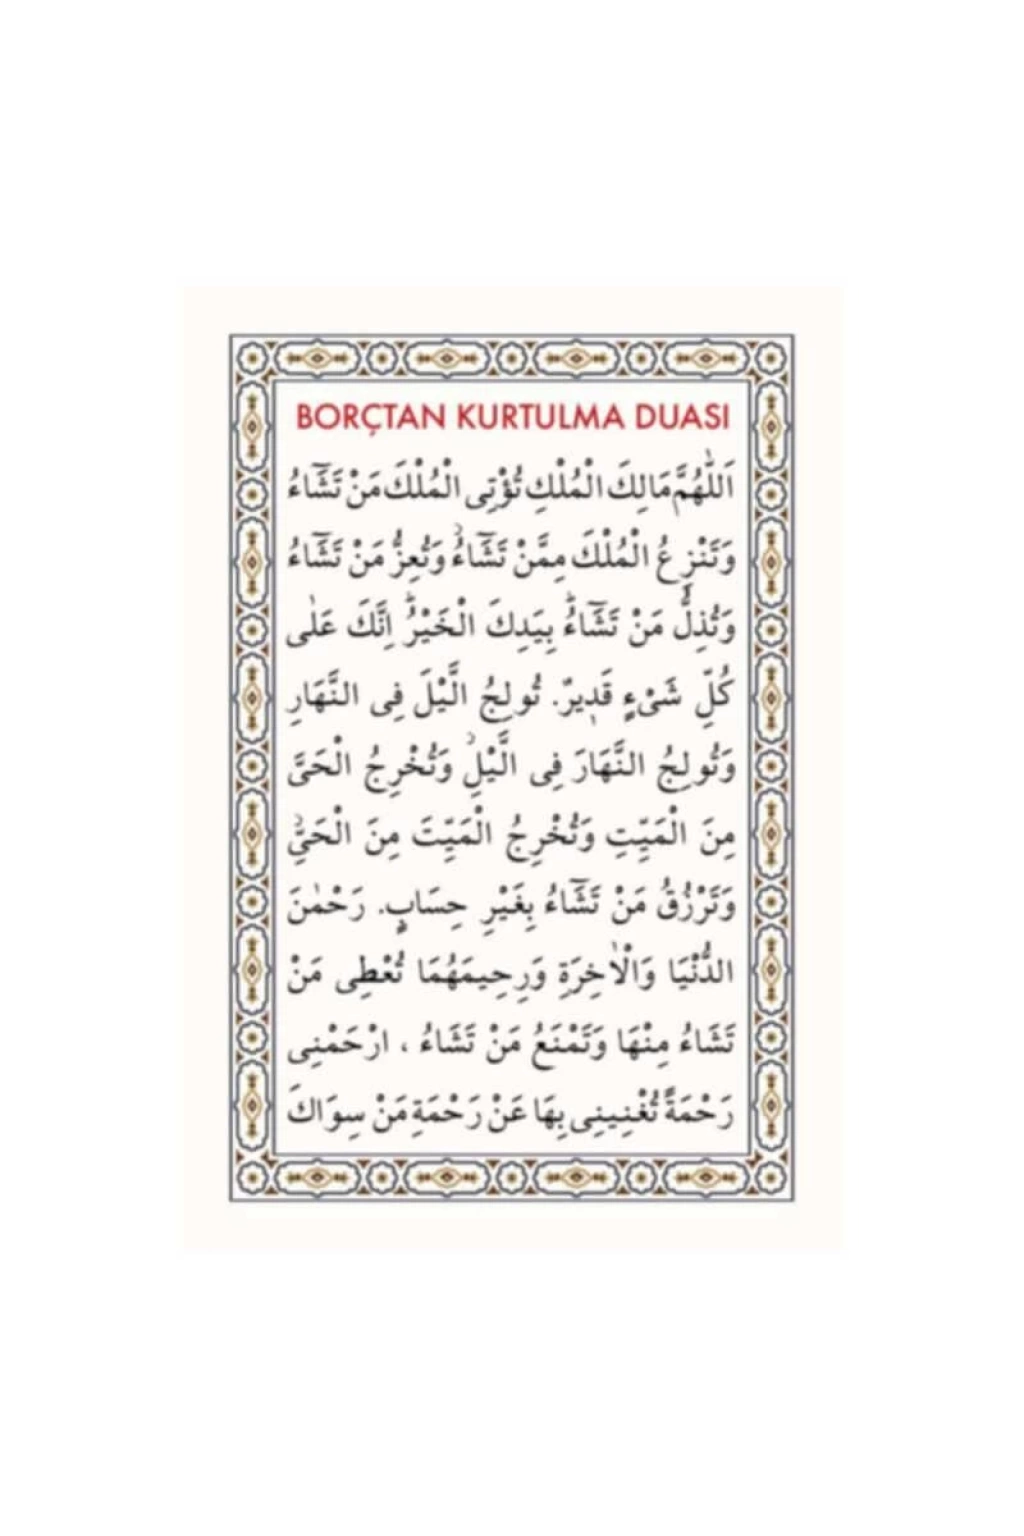 BORÇTAN KURTULMA DUASI
اَللّٰهُمَّ مَالِكَ الْمُلْكِ تُؤْتِى الْمُلْكَ مَنْ تَشَٓاءُ
وَتَنْزِعُ الْمُلْكَ مِمَّنْ تَشَٓاءُۘ وَتُعِزُّ مَنْ تَشَٓاءُ
وَتُذِلُّ مَنْ تَشَٓاءُؕ بِيَدِكَ الْخَيْرُؕ اِنَّكَ عَلٰى
كُلِّ شَىْءٍ قَدٖيرٌ. تُولِجُ الَّيْلَ فِى النَّهَارِ
وَتُولِجُ النَّهَارَ فِى الَّيْلِؗ وَتُخْرِجُ الْحَىَّ
مِنَ الْمَيِّتِ وَتُخْرِجُ الْمَيِّتَ مِنَ الْحَىِّؗ
وَتَرْزُقُ مَنْ تَشَٓاءُ بِغَيْرِ حِسَابٍ. رَحْمٰنَ
الدُّنْيَا وَالْاٰخِرَةِ وَرِحِيمَهُمَا تُعْطِى مَنْ
تَشَاءُ مِنْهَا وَتَمْنَعُ مَنْ تَشَاءُ ، ارْحَمْنِى
رَحْمَةً تُغْنِينِى بِهَا عَنْ رَحْمَةِ مَنْ سِوَاكَ